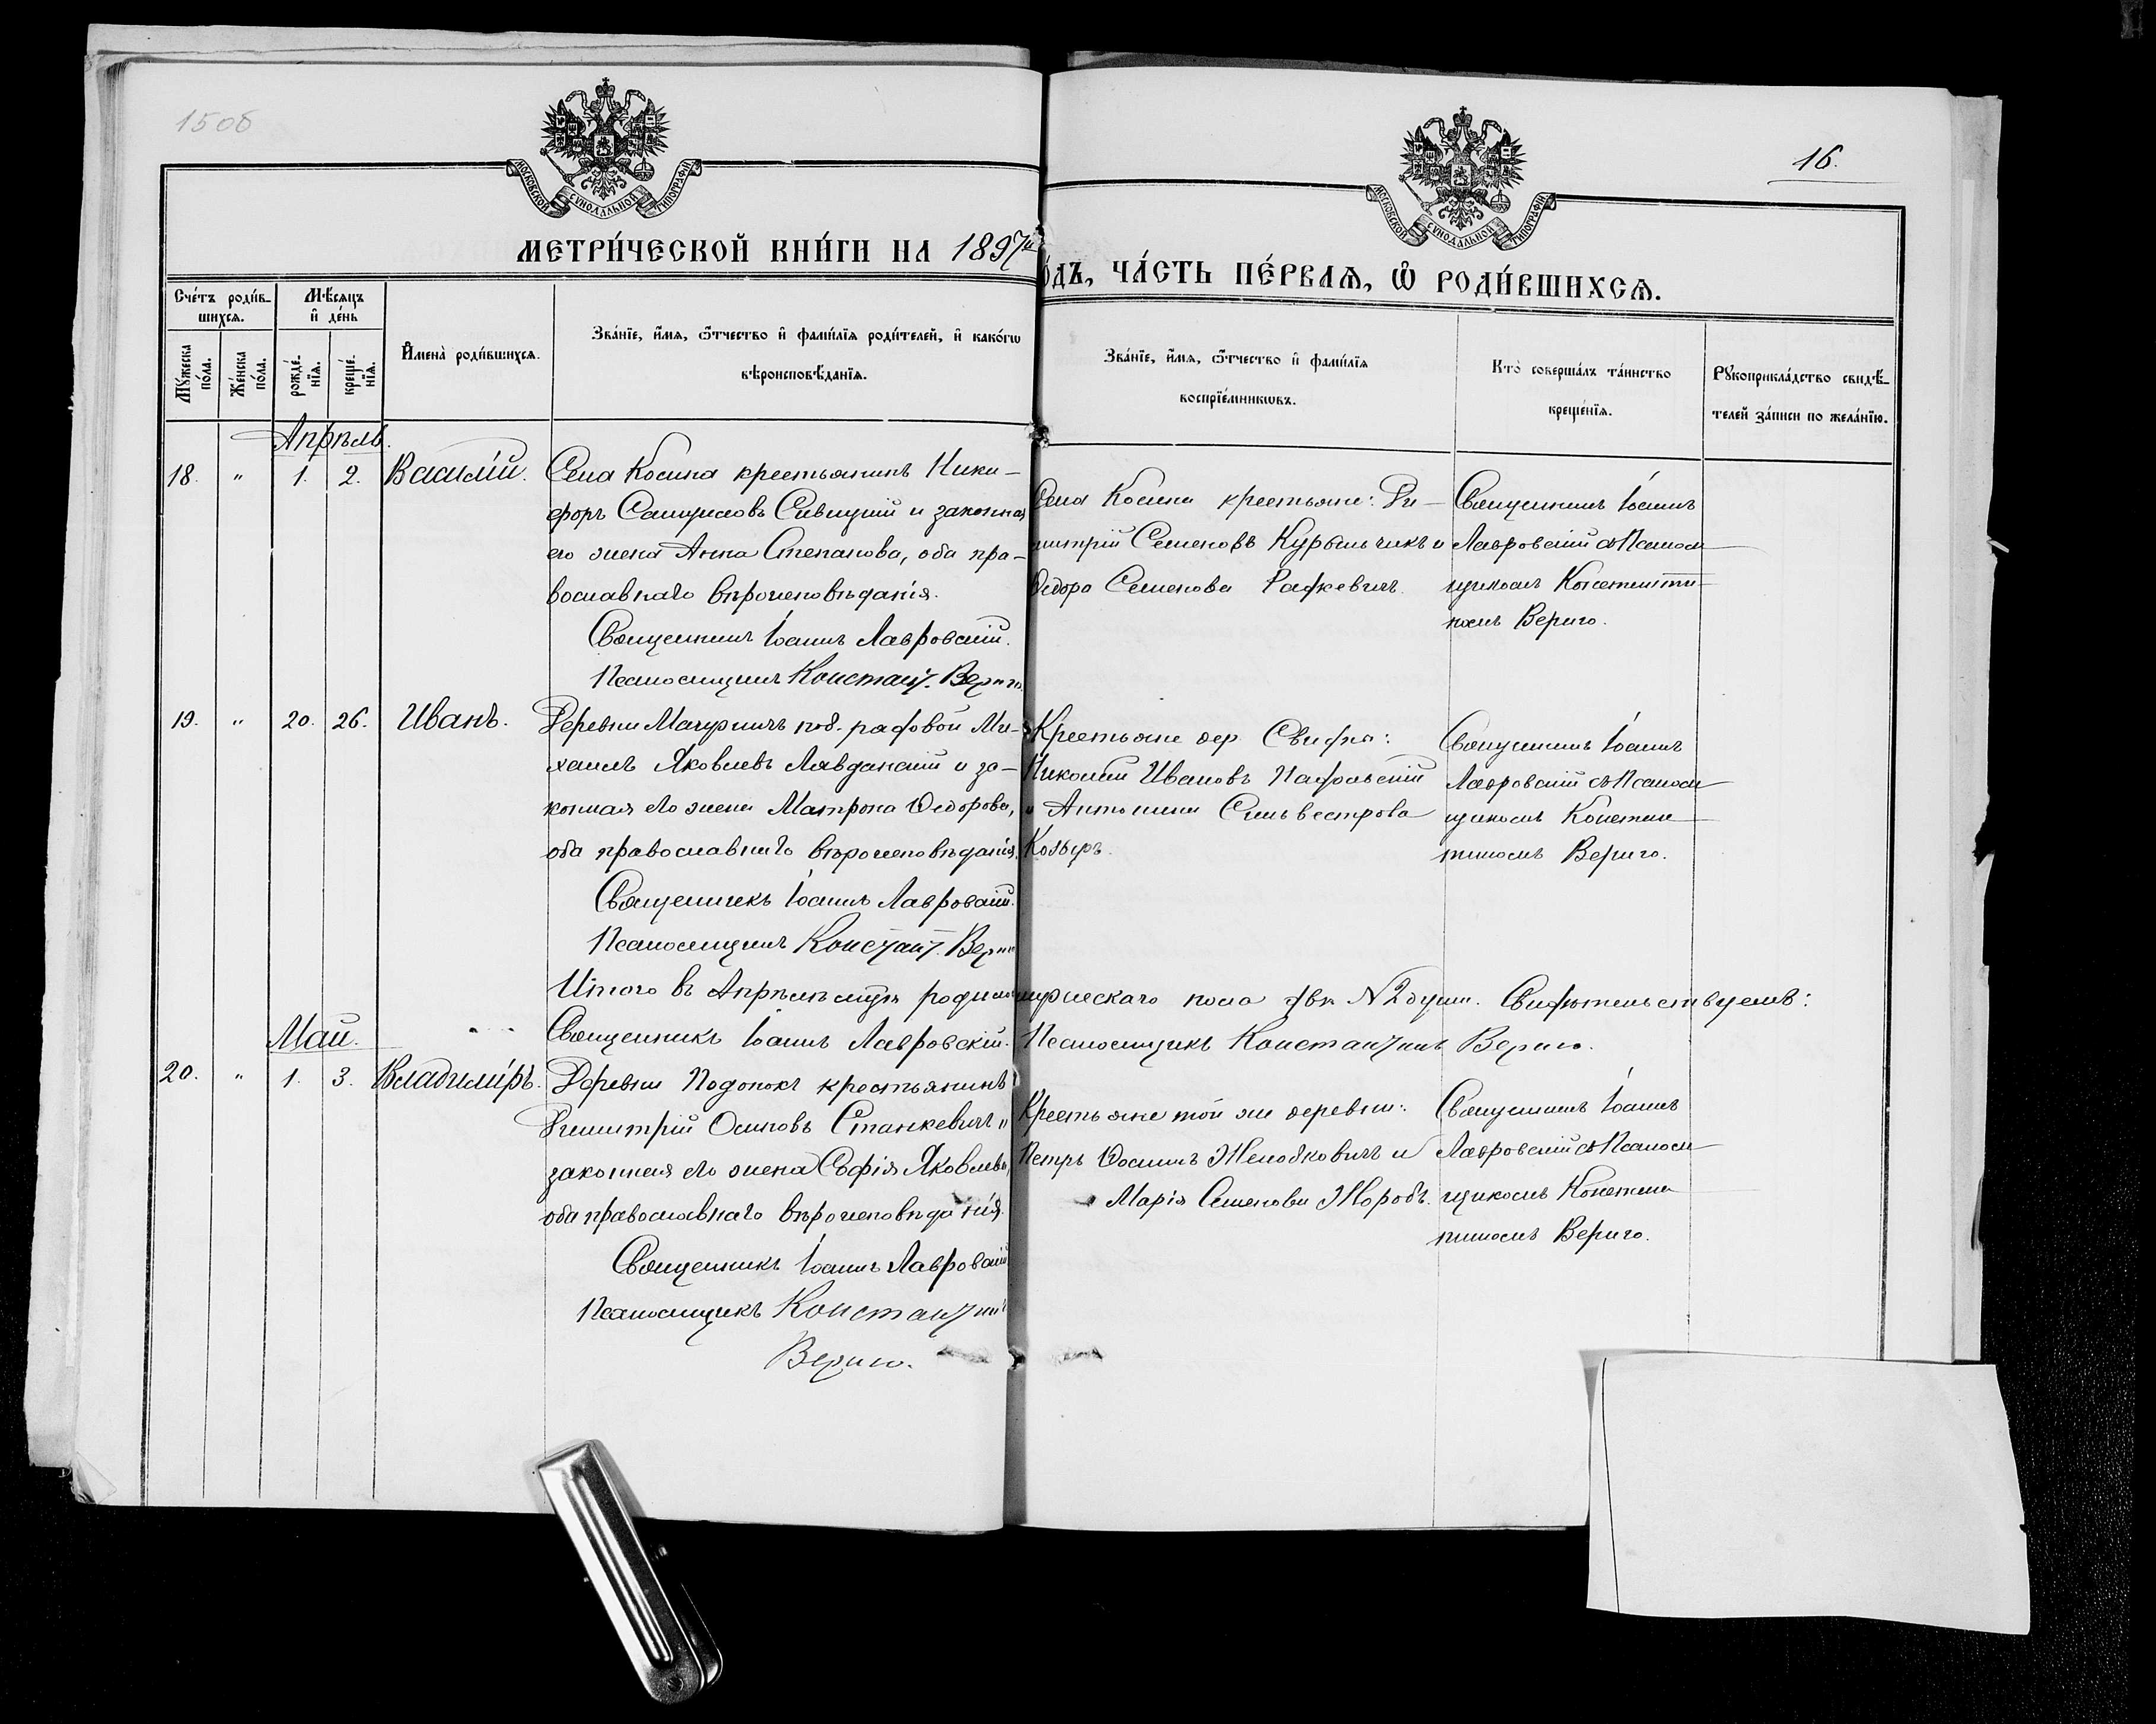 15об
16.
МОСКОВСКОЙ СѴНОДАЛЬНОЙ ТИПОГРАФІИ
МОСКОВСКОЙ СѴНОДАЛЬНОЙ ТИПОГРАФІИ
МЕТРИ́ЧЕСКОЙ КНИ́ГИ НА 1897й
О́ДЪ, ЧА́СТЬ ПЕ́РВАѦ, Ѡ҆ РОДИ́ВШИХСѦ.
Сче́тъ роди́в-
шихсѧ.
Мѣ́сѧцъ
и҆ де́нь
Мꙋ́жеска по́ла.
Же́нска по́ла.
рожде́-
нїѧ.
креще́-
нїѧ.
И҆мена̀ роди́вшихсѧ.
Зва́нїе, и҆́мѧ, ѻ҆́тчество и҆ фамі́лїѧ роди́телей, и҆ како́гѡ
вѣроисповѣ́данїѧ.
Зва́нїе, и҆́мѧ, ѻ҆́тчество и҆ фамі́лїѧ
воспрїе́мникѡвъ.
Кто̀ соверша́лъ та́инство
креще́нїѧ.
Рꙋкоприкла́дство свидѣ́-
телей за́писи по жела́нїю.
Апрѣль.
18. " 1. 2. Василій. Села Косина крестьянинъ Ники-
форъ Самуиловъ Сивицкій и законная
его жена Анна Степанова, оба пра-
вославнаго вѣроисповѣданія.
Священникъ Іоаннъ Лавровскій.
Псаломщикъ Констант. Вериго.
Села Косина крестьяне: Ди-
митрій Семеновъ Курыльчикъ и
Ѳедора Семенова Рафкевичъ.
Священникъ Іоаннъ
Лавровскій съ Псалом-
щикомъ Константи-
номъ Вериго.
19. " 20. 26. Иванъ. Деревни Мачуличъ рядовой Ми-
хаилъ Яковлевъ Лявданскій и за-
конная его жена Матрона Ѳедорова,
оба православнаго вѣроисповѣданія.
Священникъ Іоаннъ Лавровскій.
Псаломщикъ Констант. Вериго
Крестьяне дер.
Николай Ивановъ
и Антонина Сильвестрова
Козыръ.
Священникъ Іоаннъ
Лавровскій съ Псалом-
щикомъ Констан-
тиномъ Вериго.
Итого въ Апрѣлѣ мѣсяцѣ родилось мужескаго пола два № 2 души. Свидѣтельствуемъ:
Священникъ Іоаннъ Лавровскій. Псаломщикъ Константинъ Вериго.
Май.
20. " 1. 3. Владиміръ. Деревни Подонокъ крестьянинъ
Димитрій Осиповъ Станкевичъ и
законная его жена Софія Яковлева,
оба православнаго вѣроисповѣданія.
Священникъ Іоаннъ Лавровскій
Псаломщикъ Константинъ
Вериго.
Крестьяне той же деревни:
Петръ Жолобковичъ и
Марія Семенова
Священникъ Іоаннъ
Лавровскій съ Псалом-
щикомъ Констан-
тиномъ Вериго.